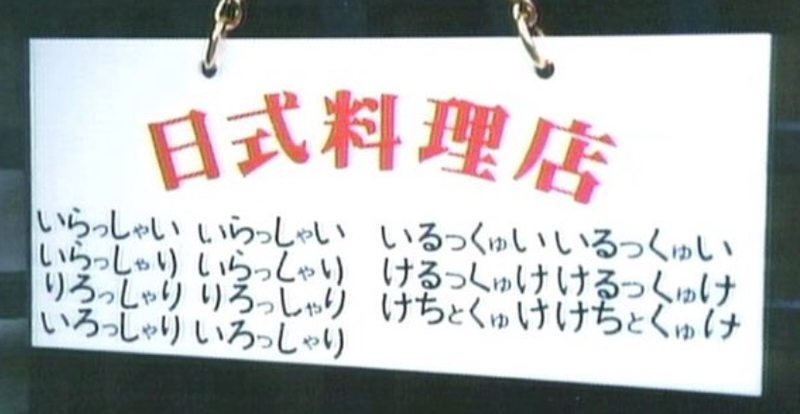 日式料理店
いらっしゃい いらっしゃい
いらっしゃり いらっしゃり
りろっしゃり りろっしゃり
いろっしゃり いろっしゃり
いるっくゅい いるっくゅい
けるっくゅけ けるっくゅけ
けちとくゅけ けちとくゅけ